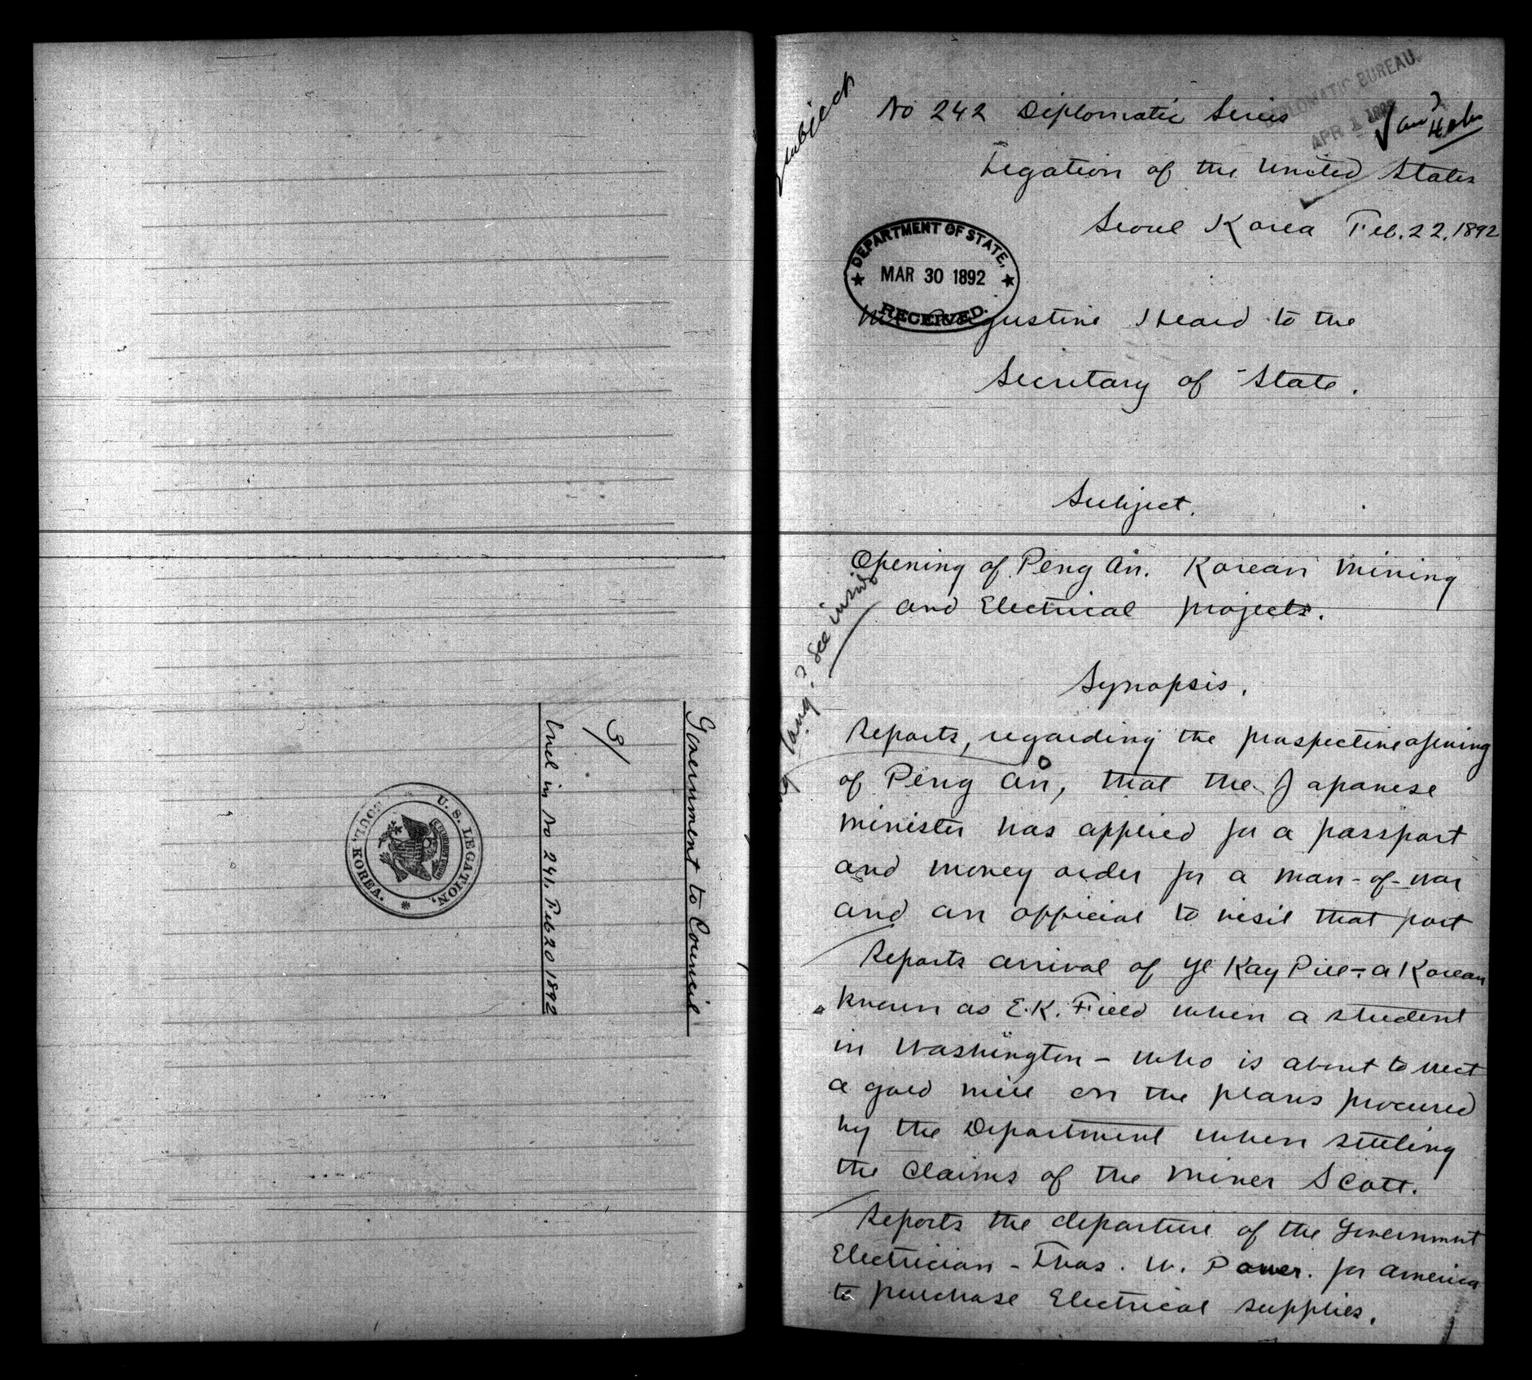 Government to Council
3/
Encl in No 241. Feb 20 1892
U. S. LEGATION,
SOUL. KOREA.
Subject
No 242 Diplomatic Series
DIPLOMATIC BUREAU.
APR 1 1892
Legation of the United States
Seoul Korea Feb. 22, 1892
DEPARTMENT OF STATE,
MAR 30 1892
RECEIVED.
Mr. Augustine Heard to the
Secretary of State.
Subject.
Opening of Peng An. Korean Mining
and Electrical projects.
See inside
Synopsis.
Reports, regarding the prospective opening
of Peng An, that the Japanese
minister has applied for a passport
and money order for a man-of-war
and an official to visit that port
Reports arrival of Ye Kay Pill - a Korean
known as E.K. Field when a student
in Washington - who is about to erect
a gold mill on the plans procured
by the Department when settling
the claims of the miner Scott.
Reports the departure of the Government
Electrician - Thos. W. Power. for America
to purchase Electrical supplies.